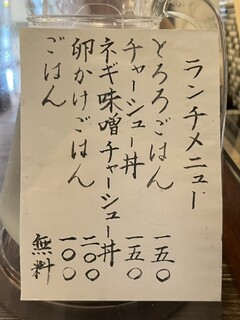 ランチメニュー
とろろごはん 一五〇
チャーシュー丼 一五〇
ネギ味噌チャーシュー丼 二〇〇
卵かけごはん 一〇〇
ごはん 無料